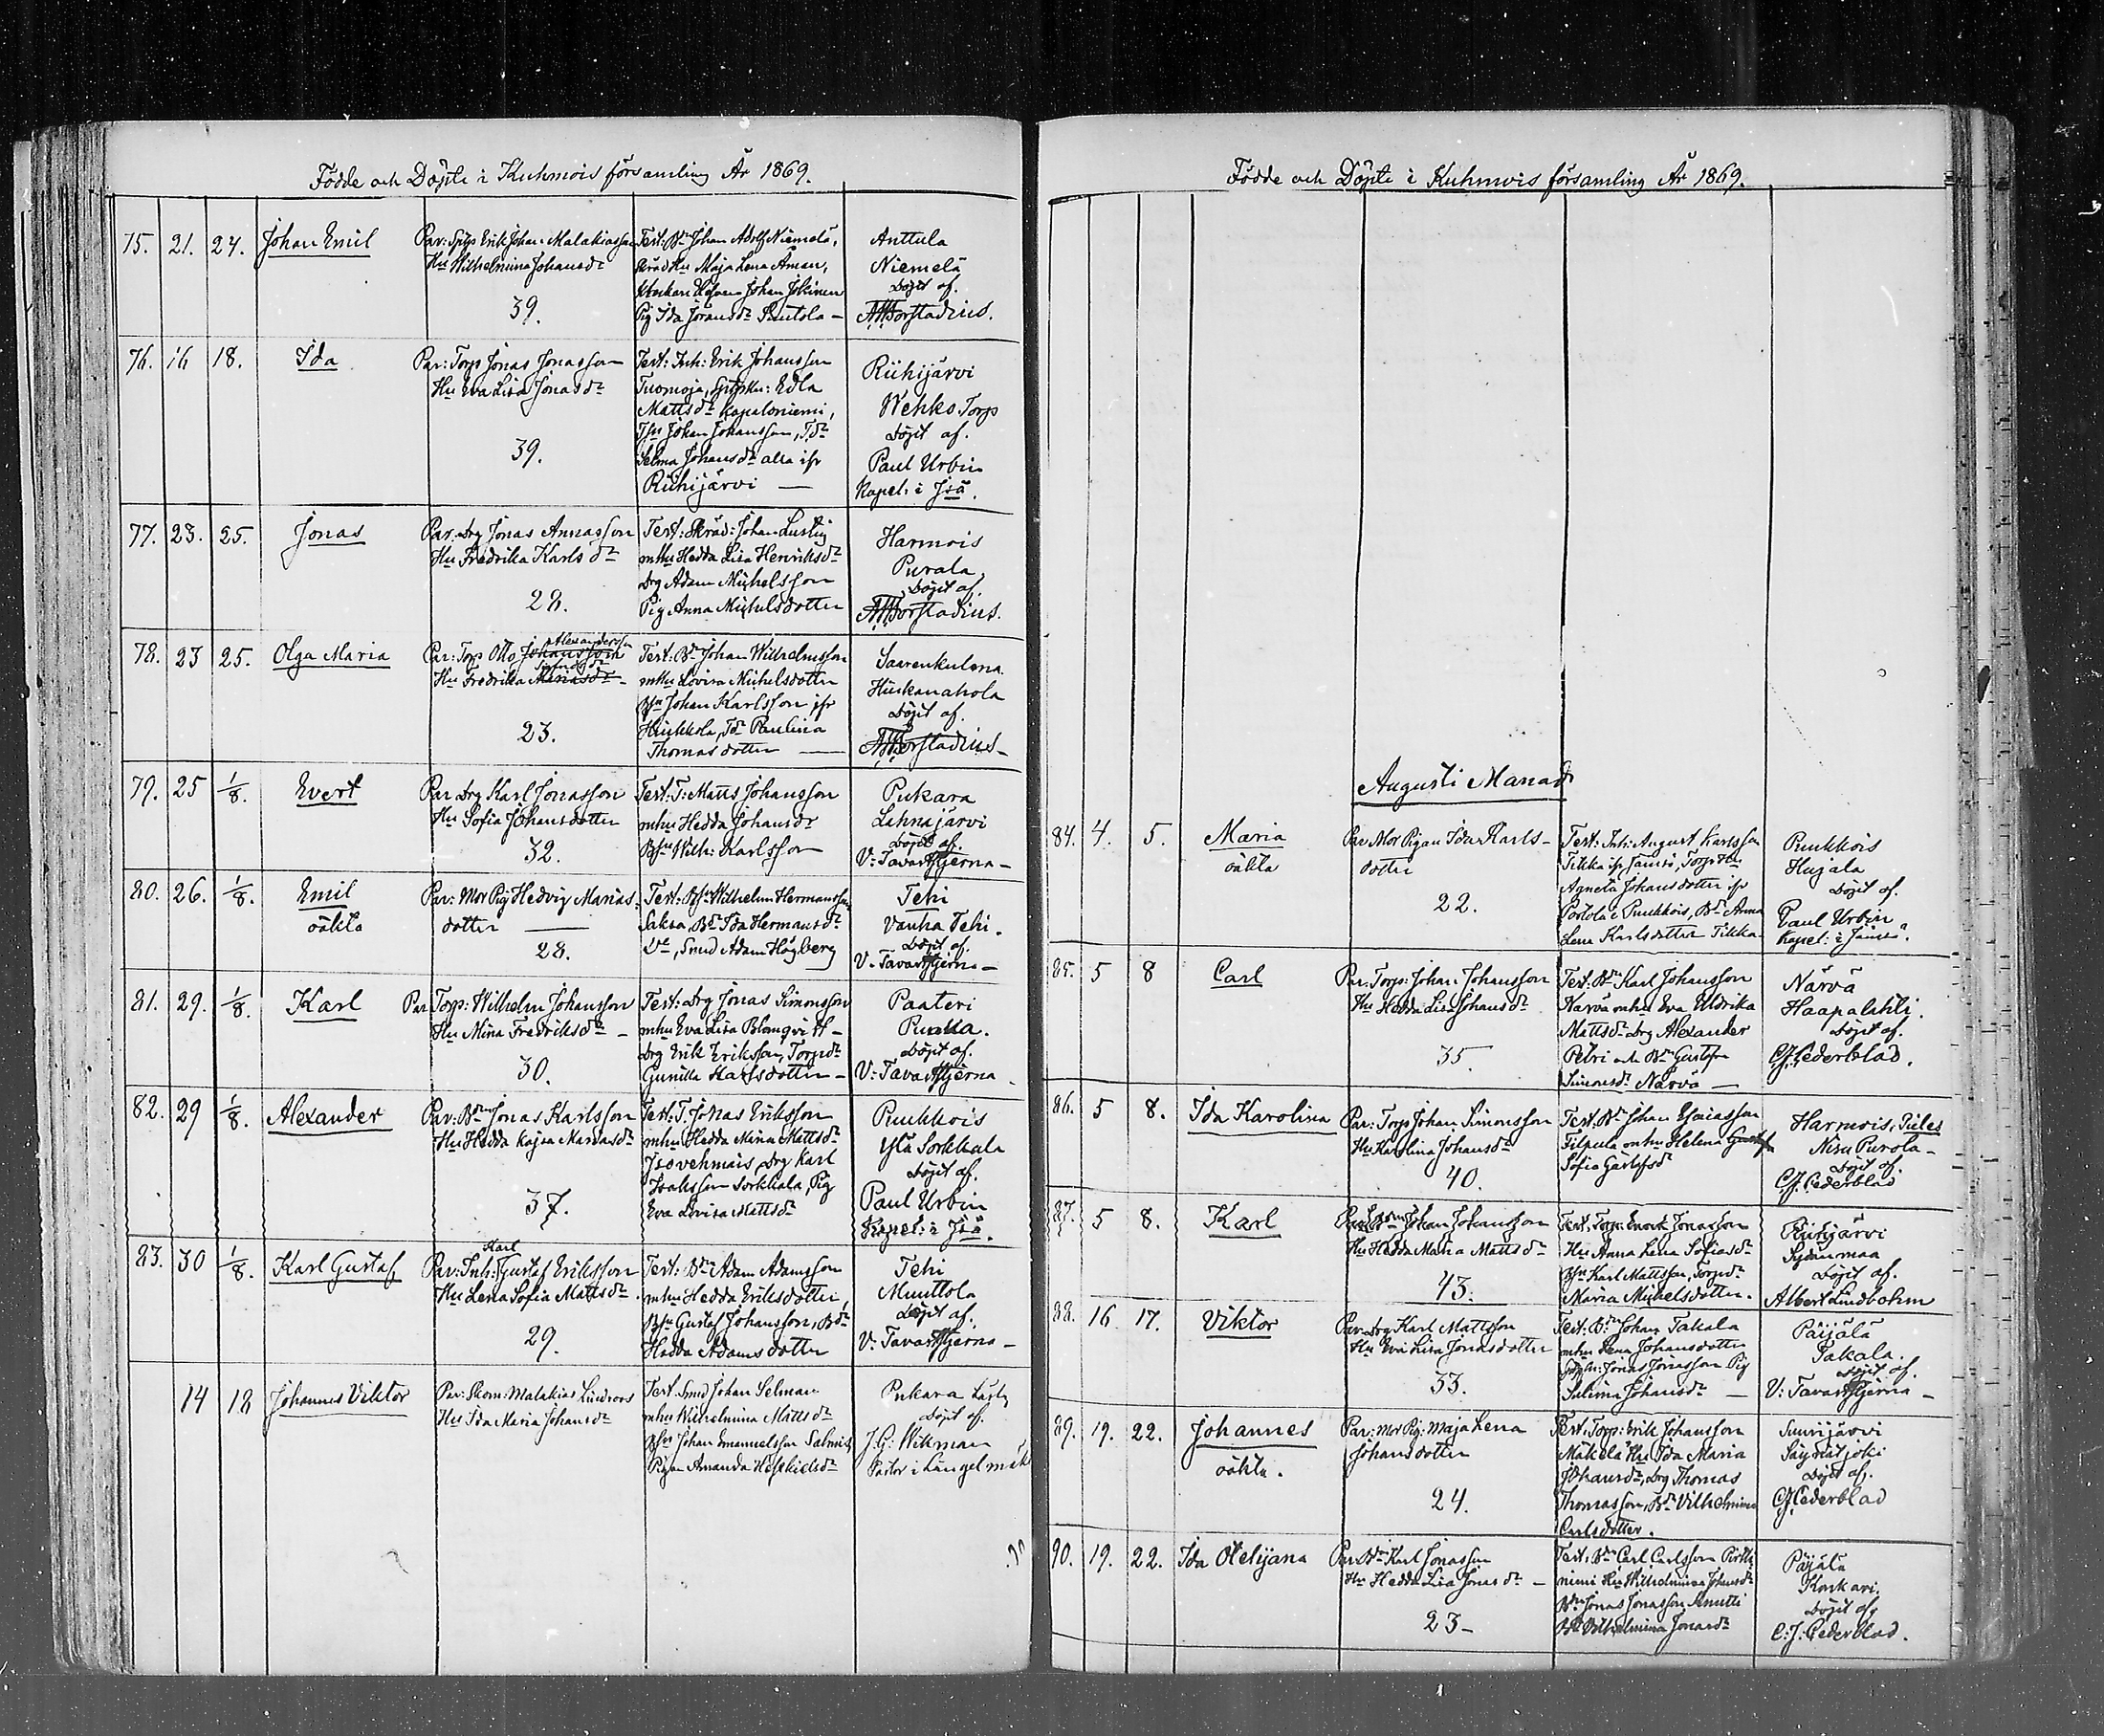 Födde och Döpte i Kuhmois församling År 1869.
75. 21. 24. Johan Emil
Par: Sytgs Erik Johan Malakiasson
Hu Wilhelmina Johansdr
39.
Test: Bdn Johan Adolf Niemelä,
Skräd Hu Maja Lena Åman,
Johan Jokinen
Pig Ida Jöransdr
Anttula
Niemelä
Döpt af.
76. 16 18. Ida
Par: Torp Jonas Jonasson
Hu Eva Lisa Jonasdr
39.
Test: Inh: Erik Johansson
Tuomoja, Edla
Mattsdr Kapaloniemi,
Johan Johansson, T.dr
Selma Johansdr alla ifr
Riihijärvi —
Riihijärvi
Wehks Torp
Döpt af.
Paul Urbin
Kapel: i Jsä.
77. 23. 25. Jonas
Par. Drg Jonas Annasson
Hu Fredrika Karlsdr
28.
Test: Skräd: Johan Lustig
mHu Hedda Lisa Henriksdr
Drg Adam Michelsson
Pig Anna Michelsdotter
Harmois
Purala,
Döpt af.
78. 23 25. Olga Maria
Alexanderss
Par: Torp Otto Johansson
Hu Fredrika
23.
Test: Bdn Johan Wilhelmsson
mHu Lovisa Michelsdotter
Bsn Johan Karlsson ifr
Hiukkola, Tdr Paulina
Thomasdotter —
Saarenkulma
Hiiskanahola
Döpt af.
79. 25 1/8. Evert
Par Drg Karl Jonasson
Hu Sofia Johansdotter
32.
Test: T: Matts Johansson
mhu Hedda Johansdr
Bsn Wilh: Karlsson
Pukara
Lahnajärvi
Döpt af.
V: Tavaststjerna —
80. 26. 1/8. Emil
oäkta
Par: Mor Pig Hedvig Marias
dotter —
28.
Test: Bsn Wilhelm Hermansson
Saksa, Bdr Ida Hermansdr
Smed Adam Högberg
Tehi
Vanha Tehi.
Döpt af.
V. Tavaststjerna —
81. 29. 1/8. Karl
Par Torp: Wilhelm Johansson
Hu Mina Fredriksdr —
30.
Test: Drg Jonas Simonsson
mhu Eva Lisa Blomqvist —
Drg Erik Eriksson, Torpdr
Gunilla Karlsdotter —
Paateri
Döpt af.
V: Tavaststjerna
82. 29 1/8. Alexander
Par: Bdn Jonas Karlsson
Hu Hedda Kajsa Mariasdr
37.
Test: T. Jonas Eriksson
mhu Hedda Mina Mattsdr
Isovehmais, Drg Karl
Isaksson Sorkkala, Pig
Eva Lovisa Mattsdr
Puukkois
Yla Sorkkala
Döpt af.
Paul Urbin
Kapel: i Jsä.
83. 30 1/8. Karl Gustaf
Karl
Par: Inh: Gustaf Eriksson
Hu Lena Sofia Mattsdr.
29.
Test: Bdn Adam Adamsson
mhu Hedda Eriksdotter,
Bsn Gustaf Johansson, Bdr
Hedda Adamsdotter
Tehi
Muuttola
Döpt af.
V: Tavaststjerna —
14 18 Johannes Viktor
Par: Skom: Malakias Lindroos
Hu Ida Maria Johansdr
Test. Smed Johan Selman
mhu Wilhelmina Mattsdr
Bsn Johan Emanuelsson
Pigan Amanda
Pukara
Döpt af.
J.G: Wikman
Pastor i Längelmäki
Födde och Döpte i Kuhmois församling År 1869.
Augusti Manad
84. 4. 5. Maria
oäkta
Par Mor Pigan Ida Karls-
dotter
22.
Test: Inh: August Karlsson
Tikka ifr Jämsä, Torp Hu
Agneta Johansdotter ifr
Puukkois, Bdr Anna
Lena Karlsdotter Tikka.
Puukkois
Hujala
Döpt af.
Paul Urbin
Kapel: i Jämsä.
85. 5 8 Carl
Par. Torp: Johan Johansson
Hu Hedda Lisa Johansdr
35
Test: Bdn Karl Johansson
Närvä mhu Eva Uldrika
Mattsdr Drg Alexander
Petri och Bdn Gustafva
Simonsdr Närvä —
Närvä
Haapalahti.
Döpt af.
C.J. Cederblad.
86. 5 8. Ida Karolina
Par: Torp Johan Simonsson
Hu Karolina Johansdr
40.
Test: Bdn Johan Esaiasson
Filpula mhu Helena
Sofia Gustafsdr
Harmois,
Purola —
Döpt af.
C.J. Cederblad
87. 5 8. Karl
Par: Bdn Johan Johansson
Hu Hedda Maria Mattsdr
43.
Test, Torp: Enok Jonasson
Hu Anna Lena Sofiasdr
Bsn Karl Mattsson, Torpdr
Maria Michelsdotter.
Riihijärvi
Sydänmaa
Döpt af.
Albert Lindbohm
88. 16 17. Viktor
Par. Drg Karl Mattsson
Hu Eva Lisa Jonasdotter
33.
Test: Bdn Johan Takala
mhu Lena Johansdotter
Jonas Jonasson Pig
Salima Johansdr —
Päijälä
Takala.
Döpt af.
V: Tavaststjerna —
89. 19. 22. Johannes
oäkta.
Par: Mor Pig: Maja Lena
Johansdotter
24.
Test. Torp: Erik Johansson
Mäkelä Hu Ida Maria
Johansdr, Drg Thomas
Thomasson, Bdr Vilhelmina
Carlsdotter.
Suurijärvi
Döpt af.
C.J. Cederblad
90. 19. 22. Ida
Par: Bdn Karl Jonasson
Hu Hedda Lisa Jonasdr —
23 —
Test: Bdn Carl Carlsson Pirtti
niemi Hu Wilhelmina Johansdr
Bdn Jonas Jonasson Anutti
Wilhelmina Jonasdr
Päijälä
Konkari.
Döpt af.
C: J: Cederblad.